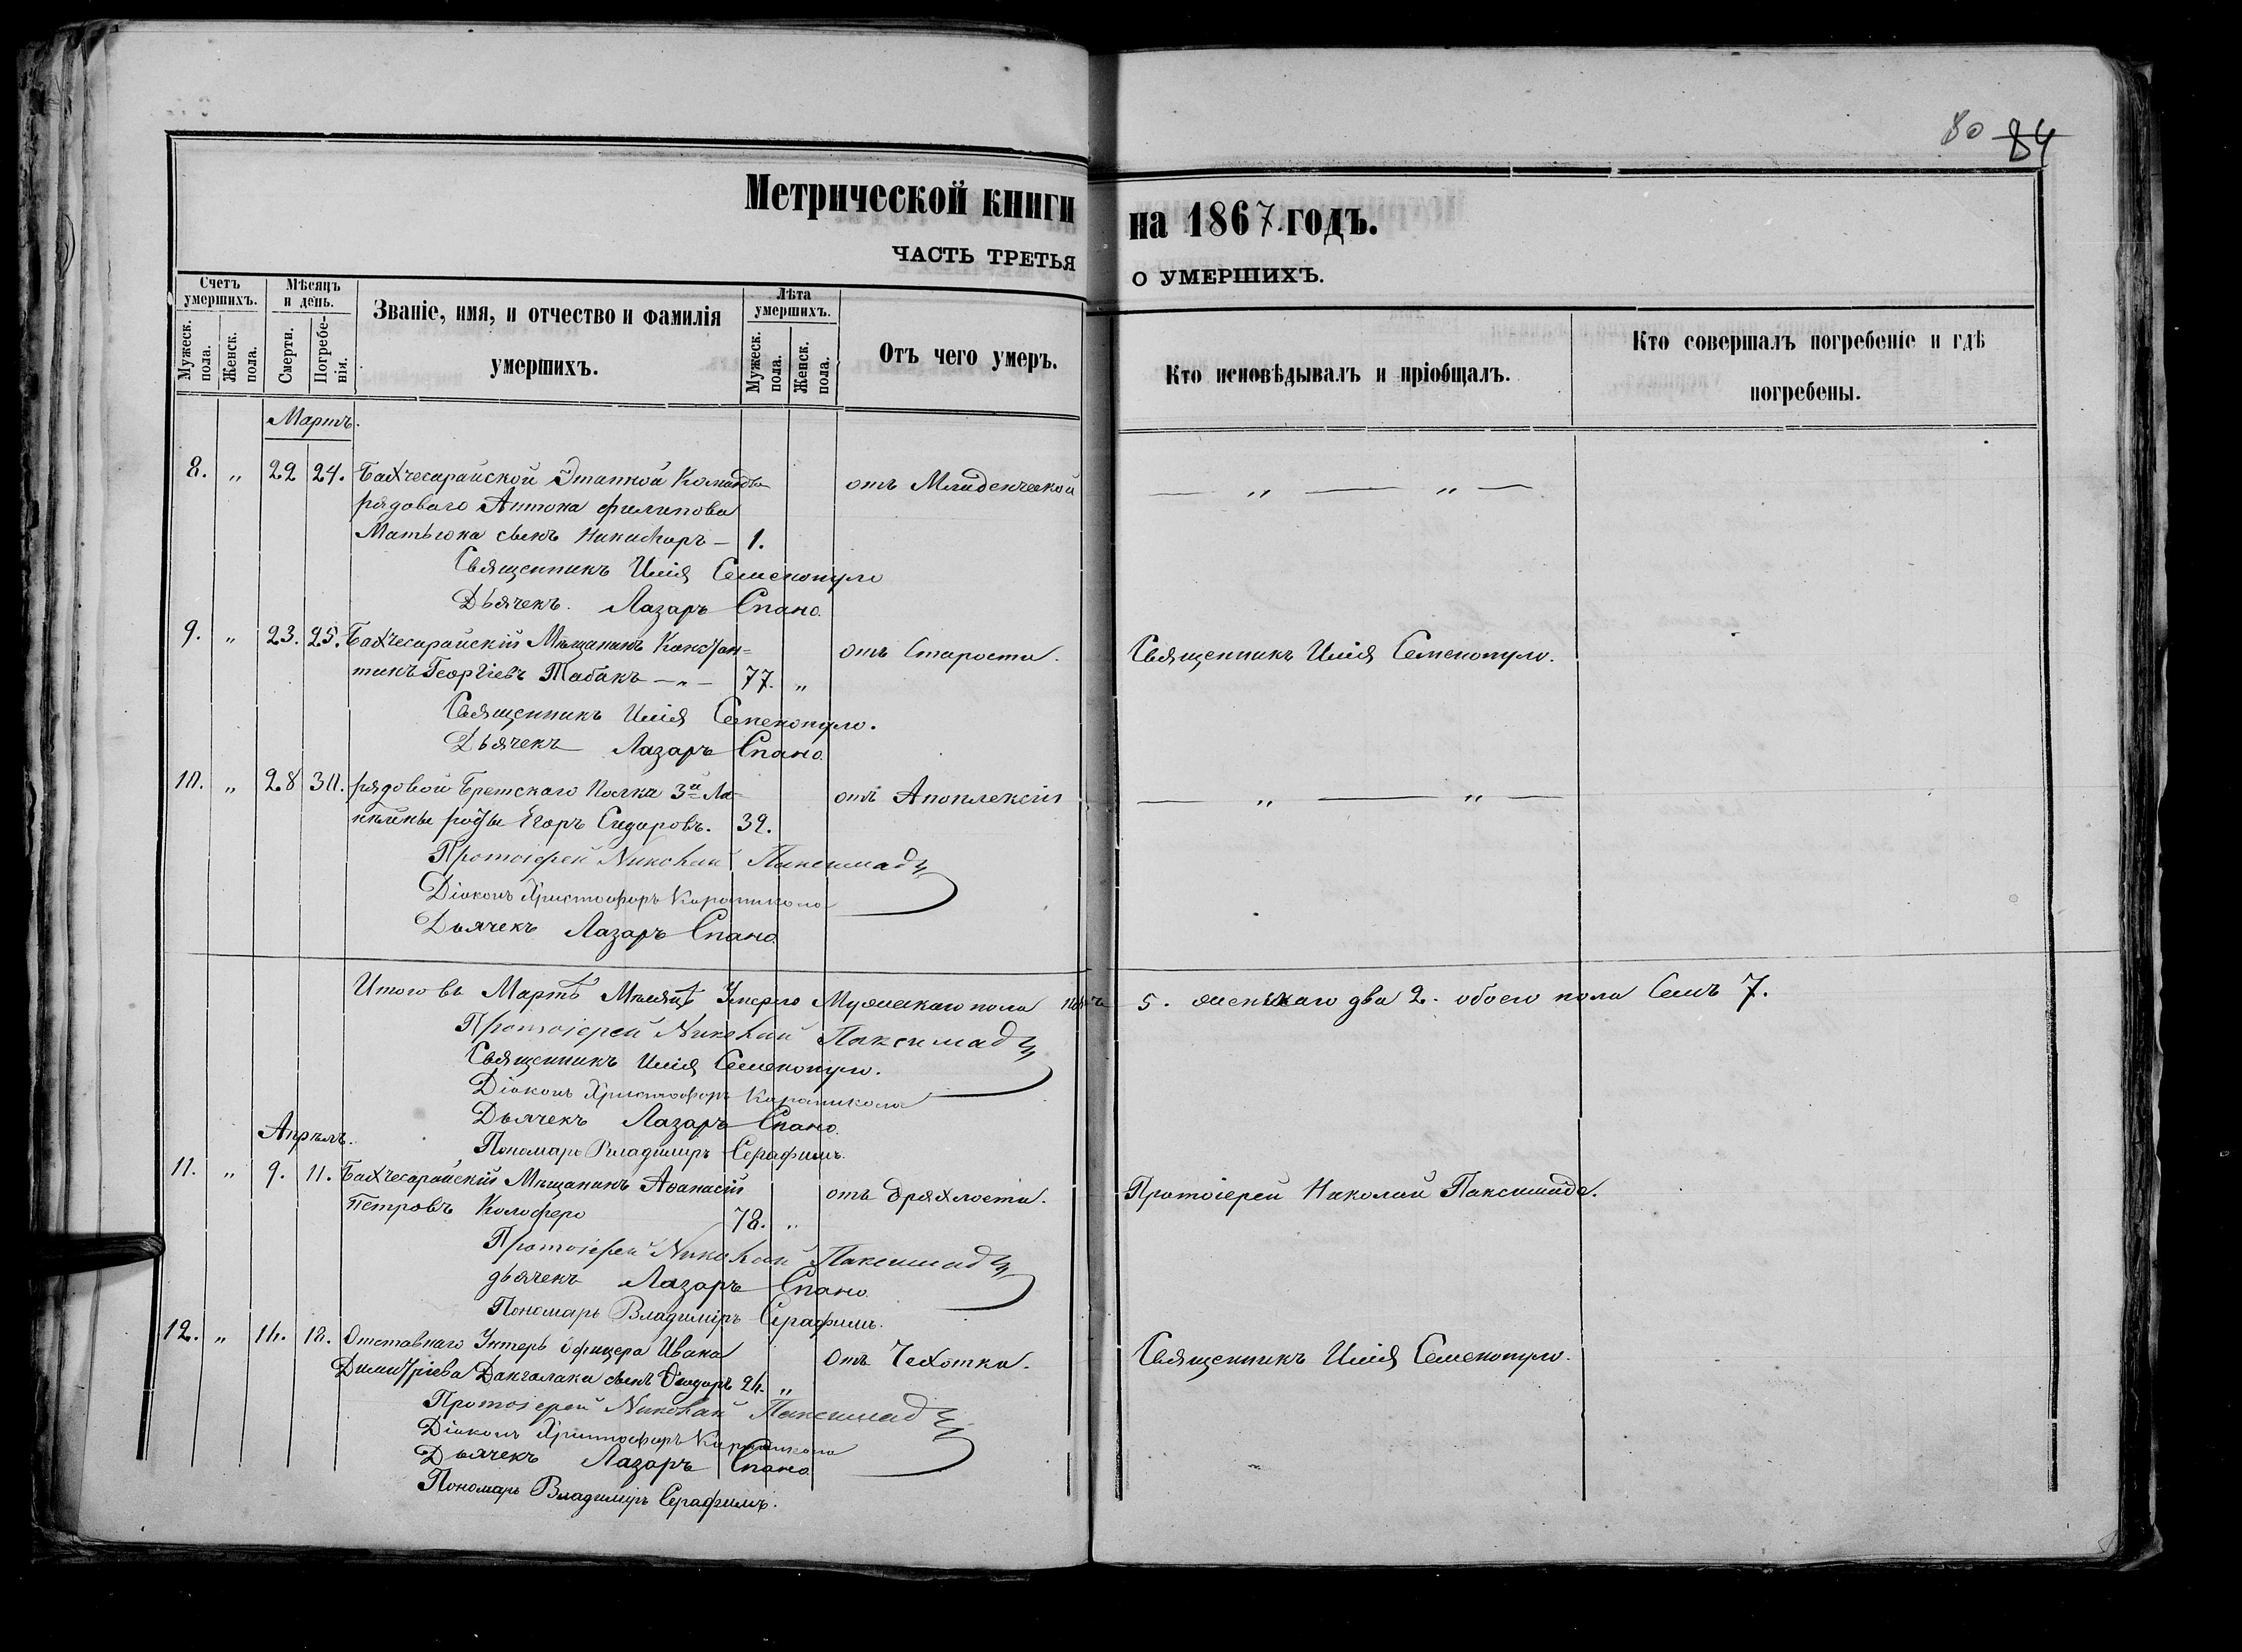 80 84
Метрической книги на 1867 годъ.
ЧАСТЬ ТРЕТЬЯ О УМЕРШИХЪ.
Счетъ умершихъ.
Мужеск. пола.
Женск. пола.
Мѣсяцъ и день.
Смерти.
Погребенія.
Званіе, имя, и отчество и фамилія
умершихъ.
Лѣта умершихъ.
Мужеск. пола.
Женск. пола.
Отъ чего умеръ.
Кто исповѣдывалъ и пріобщалъ.
Кто совершалъ погребеніе и гдѣ
погребены.
Мартъ.
8. „ 22 24. Бахчесарайской Этапной Команды отъ Младенческой — „ — „ —
рядоваго Антона Филипова
Матьюка сынъ Никифоръ — 1.
Священникъ Илія Семенопуло
Дьячекъ. Лазарь Спано.
9. „ 23. 25. Бахчесарайскій Мѣщанинъ Констан= отъ Старости. Священникъ Илія Семенопуло.
тинъ Георгіевъ Табакъ — „ — 77. „
Священникъ Илія Семенопуло.
Дьячекъ Лазарь Спано
10. „ 28 30. рядовой Бретскаго Полка 3й Ли= отъ Апоплексіи — „ — „ —
нѣйны роты Егоръ Сидоровъ. 39.
Протоіерей Николай Паксимадъ
Діаконъ Христофоръ Караникола
Дьячекъ Лазарь Спано
Итого въ Мартѣ Мѣсяцѣ Умерло Мужескаго пола пять 5. женскаго два 2. обоего пола Семъ 7.
Протоіерей Николай Паксимадъ
Священникъ Илія Семенопуло.
Діаконъ Христофоръ Караникола
Дьячекъ Лазарь Спано.
Апрѣль.
Пономарь Владиміръ Серафимъ.
11. „ 9. 11. Бахчесарайскій Мѣщанинъ Аѳанасій отъ дряхлости. Протоіерей Николай Паксимаде.
Петровъ Калоферо 78. „
Протоіерей Николай Паксимадъ
дьячекъ Лазарь Спано.
Пономарь Владиміръ Серафимъ.
12. „ 14. 18. Отставнаго Унтеръ Офицера Ивана отъ Чахотки. Священникъ Илія Семенопуло.
Димитріева Дангалаки сынъ Ѳеодоръ 24. „
Протоіерей Николай Паксимадъ
Діаконъ Христофоръ Караникола
Дьячекъ Лазарь Спано.
Пономарь Владиміръ Серафимъ.